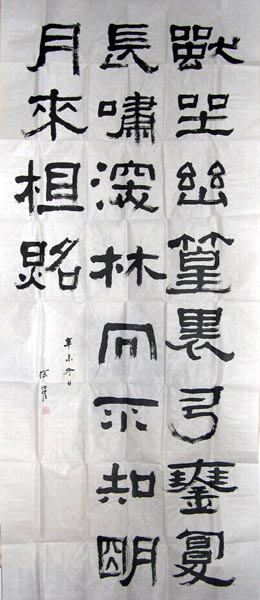 獨坐幽篁裏彈琴復
長嘯深林人不知明
月來相照
辛未冬日